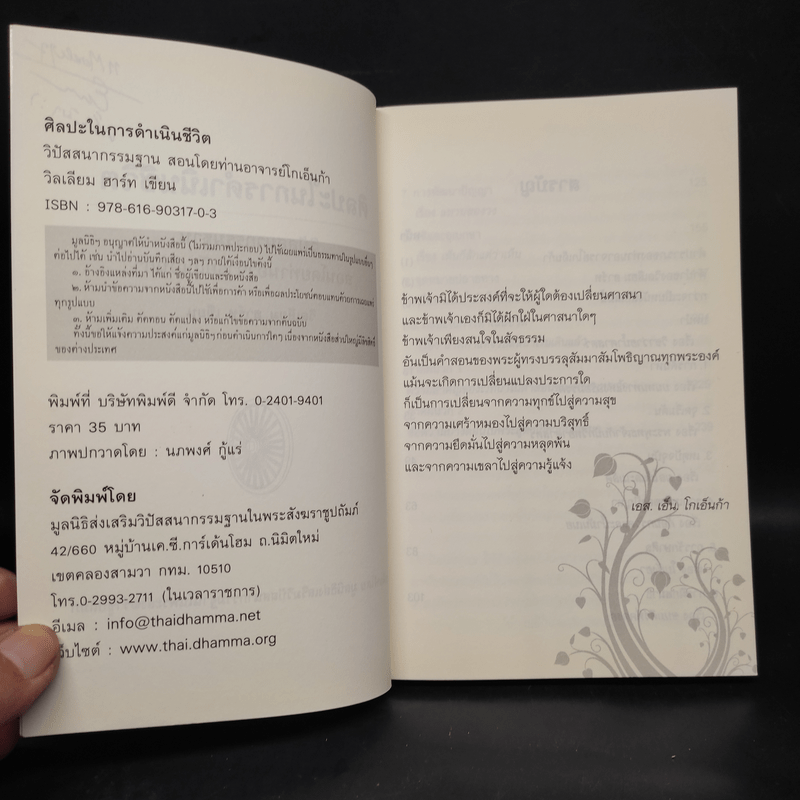 ศิลปะในการดำเนินชีวิต
วิปัสสนากรรมฐาน สอนโดยท่านอาจารย์โกเอ็นก้า
วิลเลียม ฮาร์ท เขียน
ISBN : 978-616-90317-0-3
มูลนิธิฯ อนุญาตให้นำหนังสือนี้ (ไม่รวมภาพประกอบ) ไปใช้เผยแพร่เป็นธรรมทานในรูปแบบอื่นๆ
ต่อไปได้ เช่น นำไปอ่านบันทึกเสียง ฯลฯ ภายใต้เงื่อนไขดังนี้
๑. อ้างอิงแหล่งที่มา ได้แก่ ชื่อผู้เขียนและชื่อหนังสือ
๒. ห้ามนำข้อความจากหนังสือนี้ไปใช้เพื่อการค้า หรือเพื่อผลประโยชน์ตอบแทนด้วยการเผยแพร่
ทุกรูปแบบ
๓. ห้ามเพิ่มเติม คัดทอน ดัดแปลง หรือแก้ไขข้อความจากต้นฉบับ
ทั้งนี้ขอให้แจ้งความประสงค์แก่มูลนิธิฯ ก่อนดำเนินการใดๆ เนื่องจากหนังสือส่วนใหญ่มีลิขสิทธิ์
ของต่างประเทศ
พิมพ์ที่ บริษัทพิมพ์ดี จำกัด โทร. 0-2401-9401
ราคา 35 บาท
ภาพปกวาดโดย : นภพงศ์ กู้แร่
จัดพิมพ์โดย
มูลนิธิส่งเสริมวิปัสสนากรรมฐานในพระสังฆราชูปถัมภ์
42/660 หมู่บ้านเค.ซี.การ์เด้นโฮม ถ.นิมิตใหม่
เขตคลองสามวา กทม. 10510
โทร.0-2993-2711 (ในเวลาราชการ)
อีเมล : info@thaidhamma.net
เว็บไซต์ : www.thai.dhamma.org
ข้าพเจ้ามิได้ประสงค์ที่จะให้ผู้ใดต้องเปลี่ยนศาสนา
และข้าพเจ้าเองก็มิได้ฝักใฝ่ในศาสนาใดๆ
ข้าพเจ้าเพียงสนใจในสัจธรรม
อันเป็นคำสอนของพระผู้ทรงบรรลุสัมมาสัมโพธิญาณทุกพระองค์
แม้นจะเกิดการเปลี่ยนแปลงประการใด
ก็เป็นการเปลี่ยนจากความทุกข์ไปสู่ความสุข
จากความเศร้าหมองไปสู่ความบริสุทธิ์
จากความยึดมั่นไปสู่ความหลุดพ้น
และจากความเขลาไปสู่ความรู้แจ้ง
เอส. เอ็น. โกเอ็นก้า